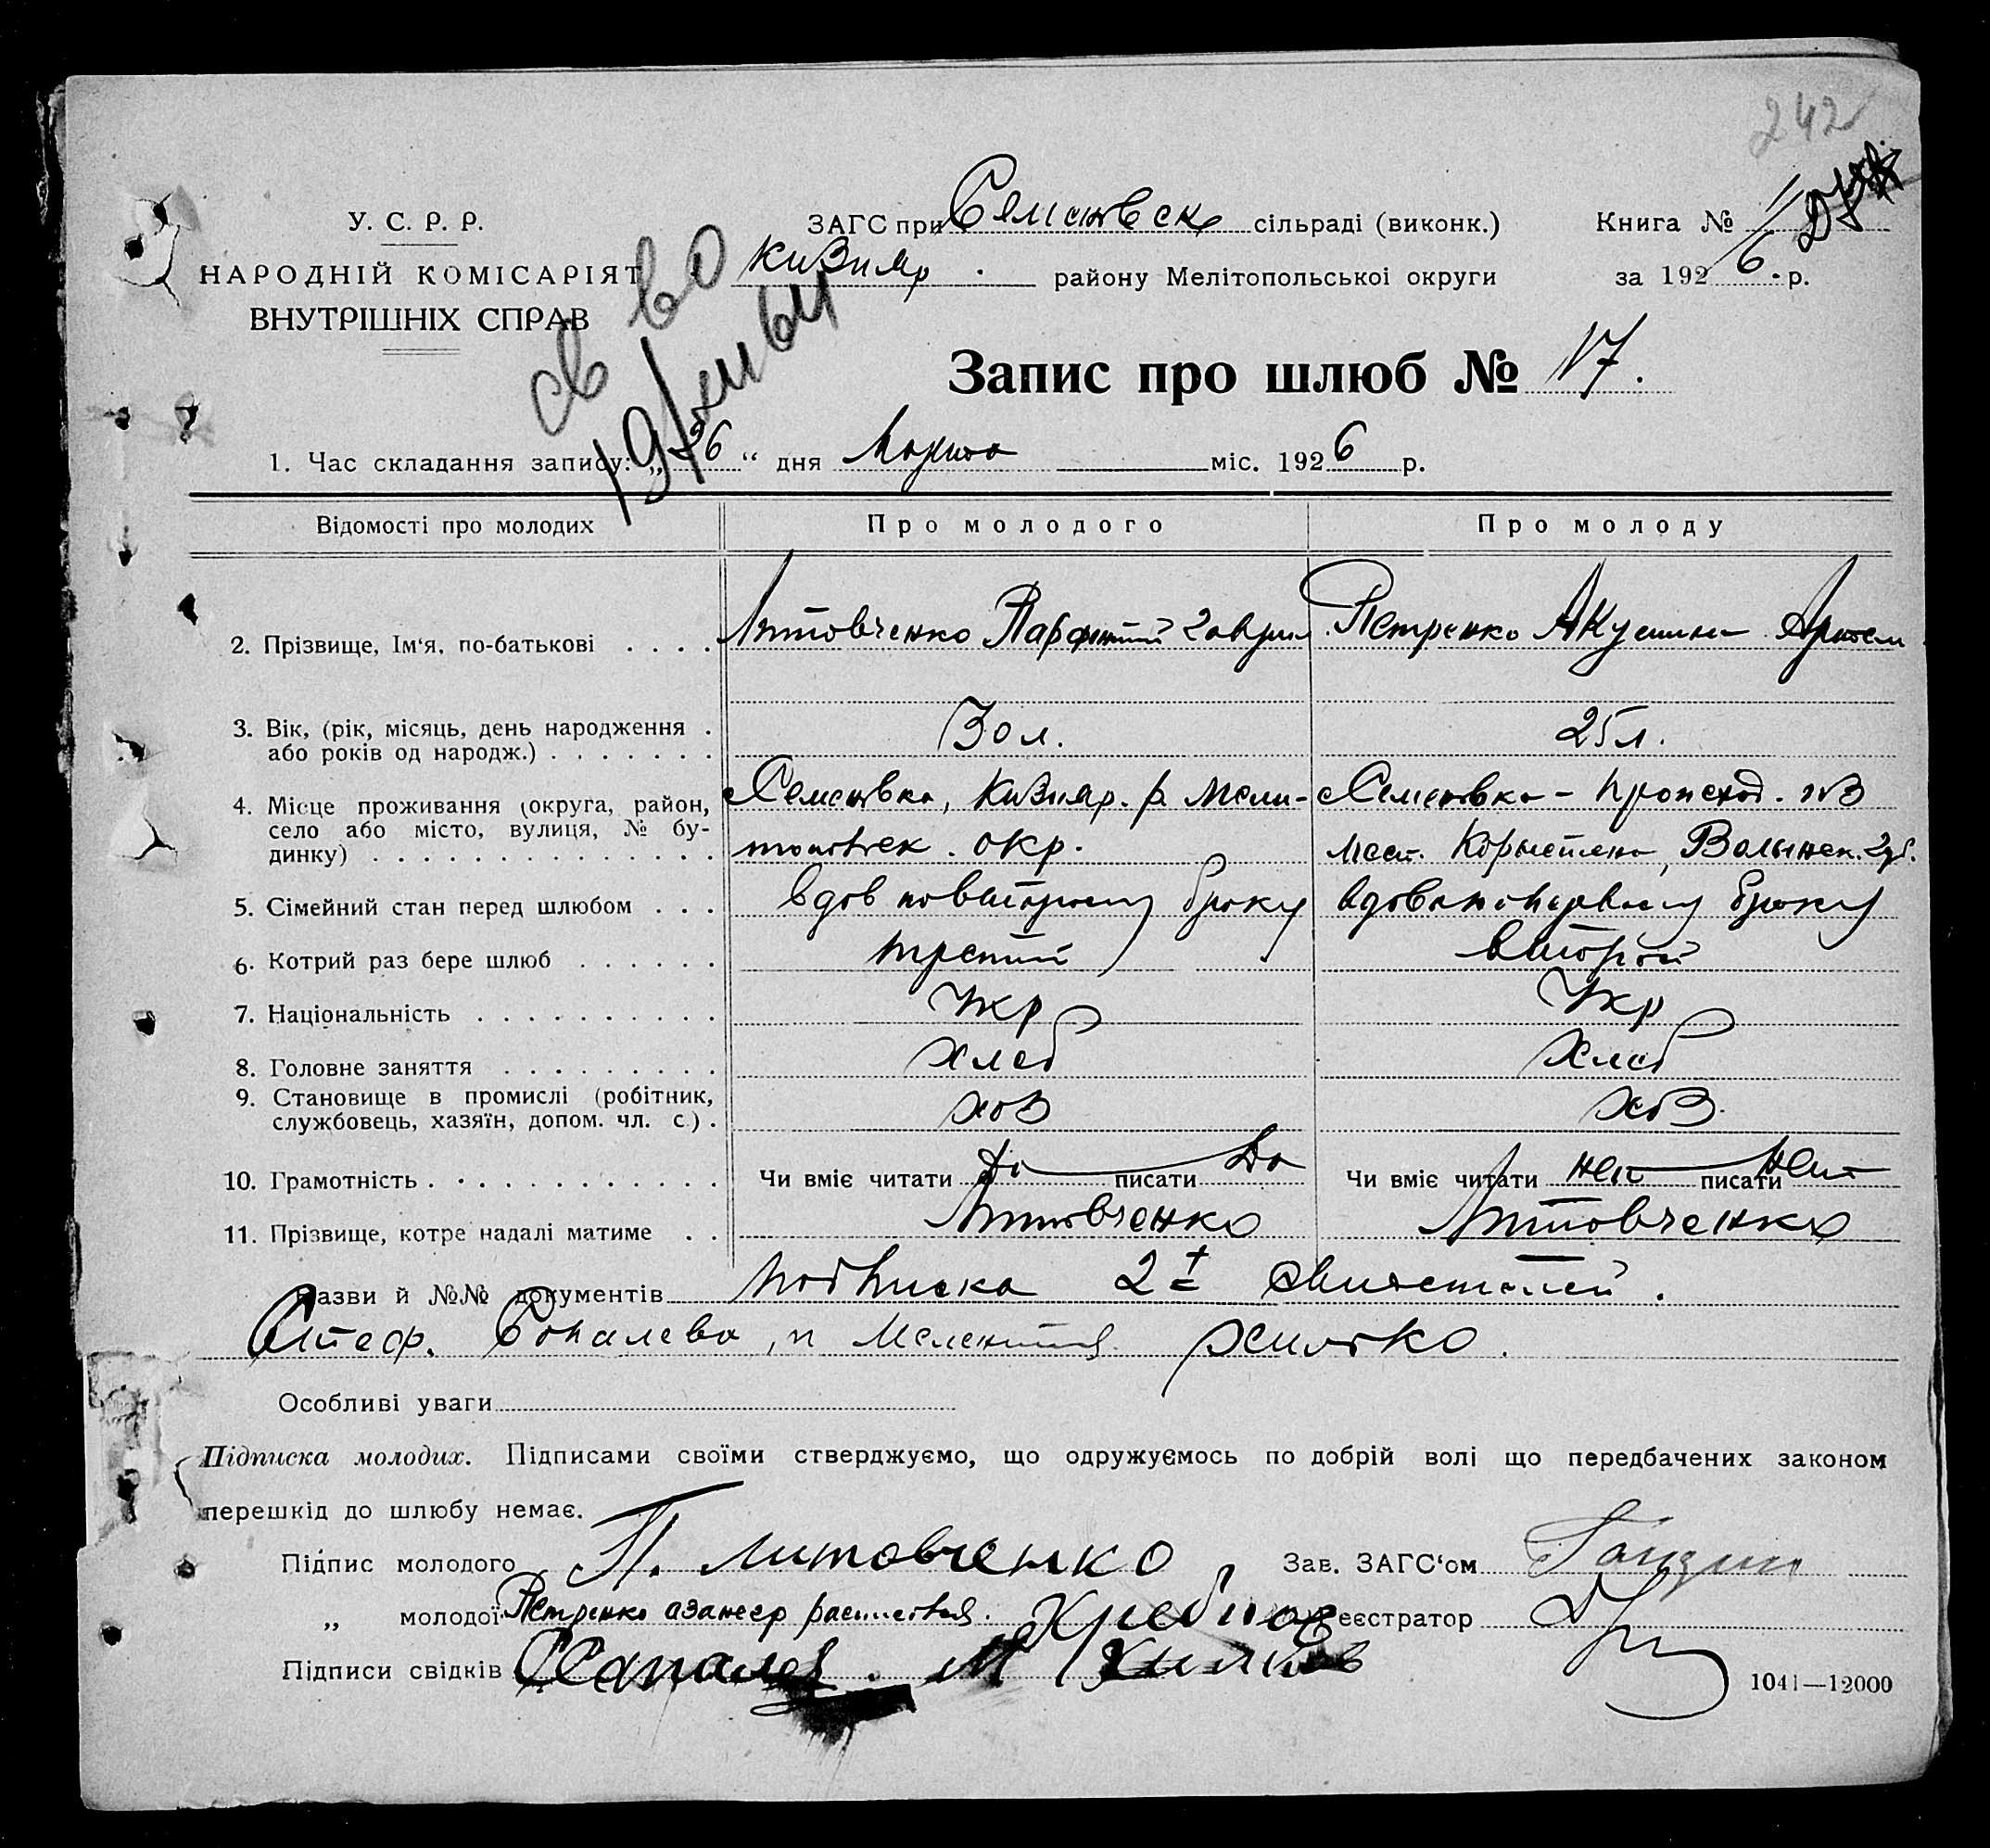 242
У. С. Р. Р.
НАРОДНІЙ КОМІСАРІЯТ
ВНУТРІШНІХ СПРАВ
ЗАГС при Семеновск сільраді (виконк.)
Кизияр. району Мелітопольської округи
Книга №
за 1926 р.
св во
Запис про шлюб № 17.
1. Час складання запису: „26“ дня Марта міс. 1926 р.
Відомості про молодих Про молодого Про молоду
2. Прізвище, Ім‘я, по-батькові . . . . Литовченко Парфентий Гаврил. Петренко Акулина Артем
3. Вік, (рік, місяць, день народження . 30 л. 25 л.
або років од народж.) . . . . . . .
4. Місце проживання (округа, район, Семеновка, Кизияр. р. Мели- Семеновка – происход. из
село або місто, вулиця, № бу-
динку) . . . . . . . . . . . . . . . топольск. окр. мест. Волынск. губ.
5. Сімейний стан перед шлюбом . . . вдов по второму браку вдова по первому браку
6. Котрий раз бере шлюб . . . . . . третий второй
7. Національність . . . . . . . . . . Укр Укр
8. Головне заняття . . . . . . . . . Хлеб Хлеб
9. Становище в промислі (робітник, хоз хоз.
службовець, хазяїн, допом. чл. с.) .
10. Грамотність . . . . . . . . . . . . Чи вміє читати да писати да Чи вміє читати нет писати нет
11. Прізвище, котре надалі матиме . . Литовченко Литовченко
Назви й №№ документів подписка 2х свидетелей.
Стеф. Сопалева, и Мелентия Хилько.
Особливі уваги
Підписка молодих. Підписами своїми стверджуємо, що одружуємось по добрій волі що передбачених законом
перешкід до шлюбу немає.
Підпис молодого П. Литовченко Зав. ЗАГС‘ом
„ молодої Петренко Реєстратор
Підписи свідків
1041—12000